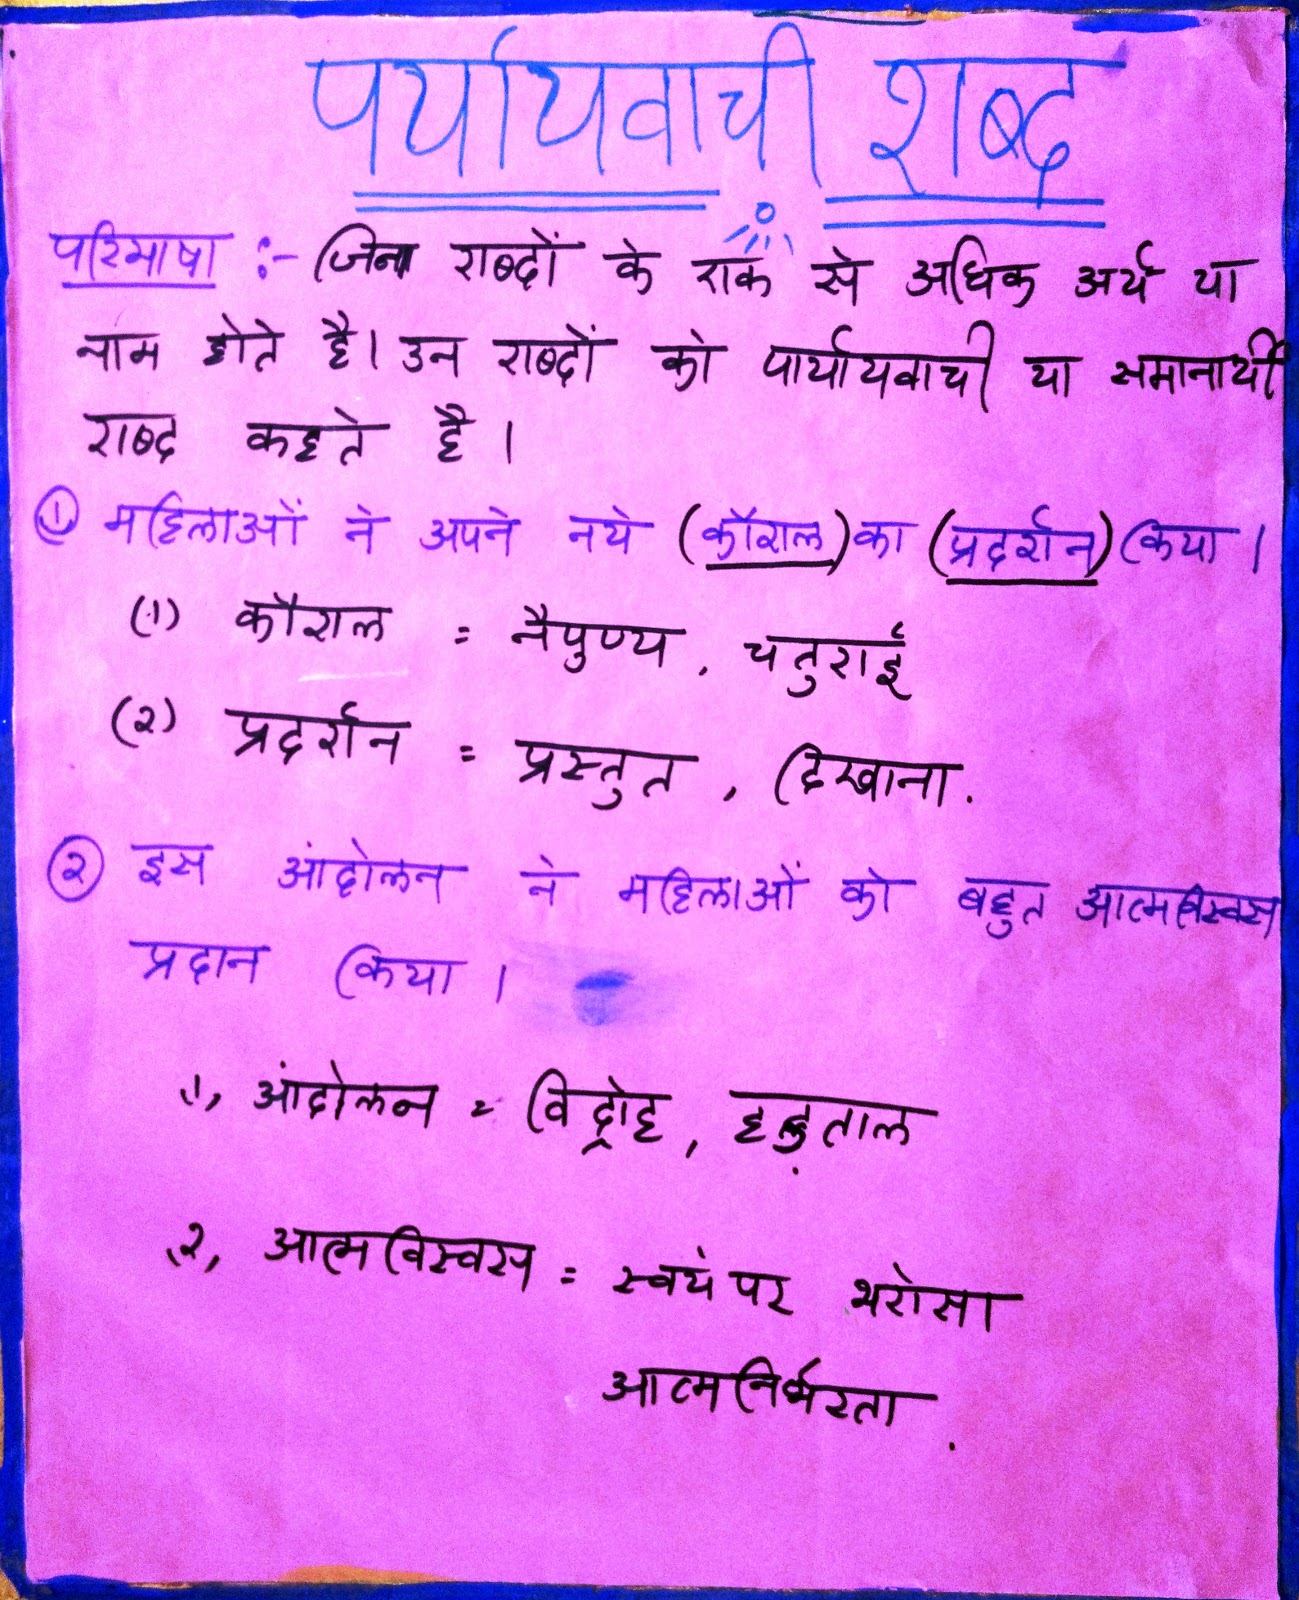 पर्यायवाची शब्द
परिभाषा :- जिन शब्दों के एक से अधिक अर्थ या
नाम होते है। उन शब्दों को पार्यायवाची या समानार्थी
शब्द कहते है।
① महिलाओं ने अपने नये (कौशल) का (प्रदर्शन) किया।
(१) कौशल = नैपुण्य, चतुराई
(२) प्रदर्शन = प्रस्तुत, दिखाना.
② इस आंदोलन ने महिलाओं को बहुत आत्मविस्वस
प्रदान किया।
१, आंदोलन = विद्रोह, हड़ताल
२, आत्मविस्वस = स्वयं पर भरोसा
आत्मनिर्भरता.